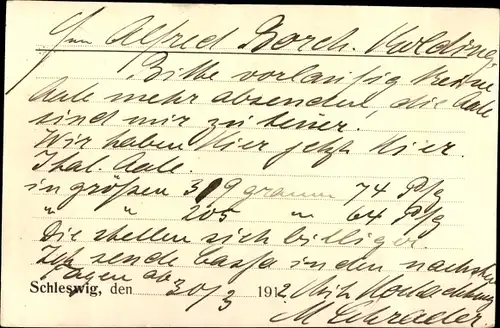 Herrn Alfred Borch. Kolding.
Bitte vorläufig keine
Aale mehr absenden, die Aale
sind mir zu teuer.
Wir haben hier jetzt hier.
Ital. Aale.
in größen 319 gramm 74 Pfg
" " 205 " 64 Pfg
Die stellen sich billiger.
Ich sende Cassa in den nächsten
Tagen ab
Schleswig, den 30/3 1912. Mit Hochachtung